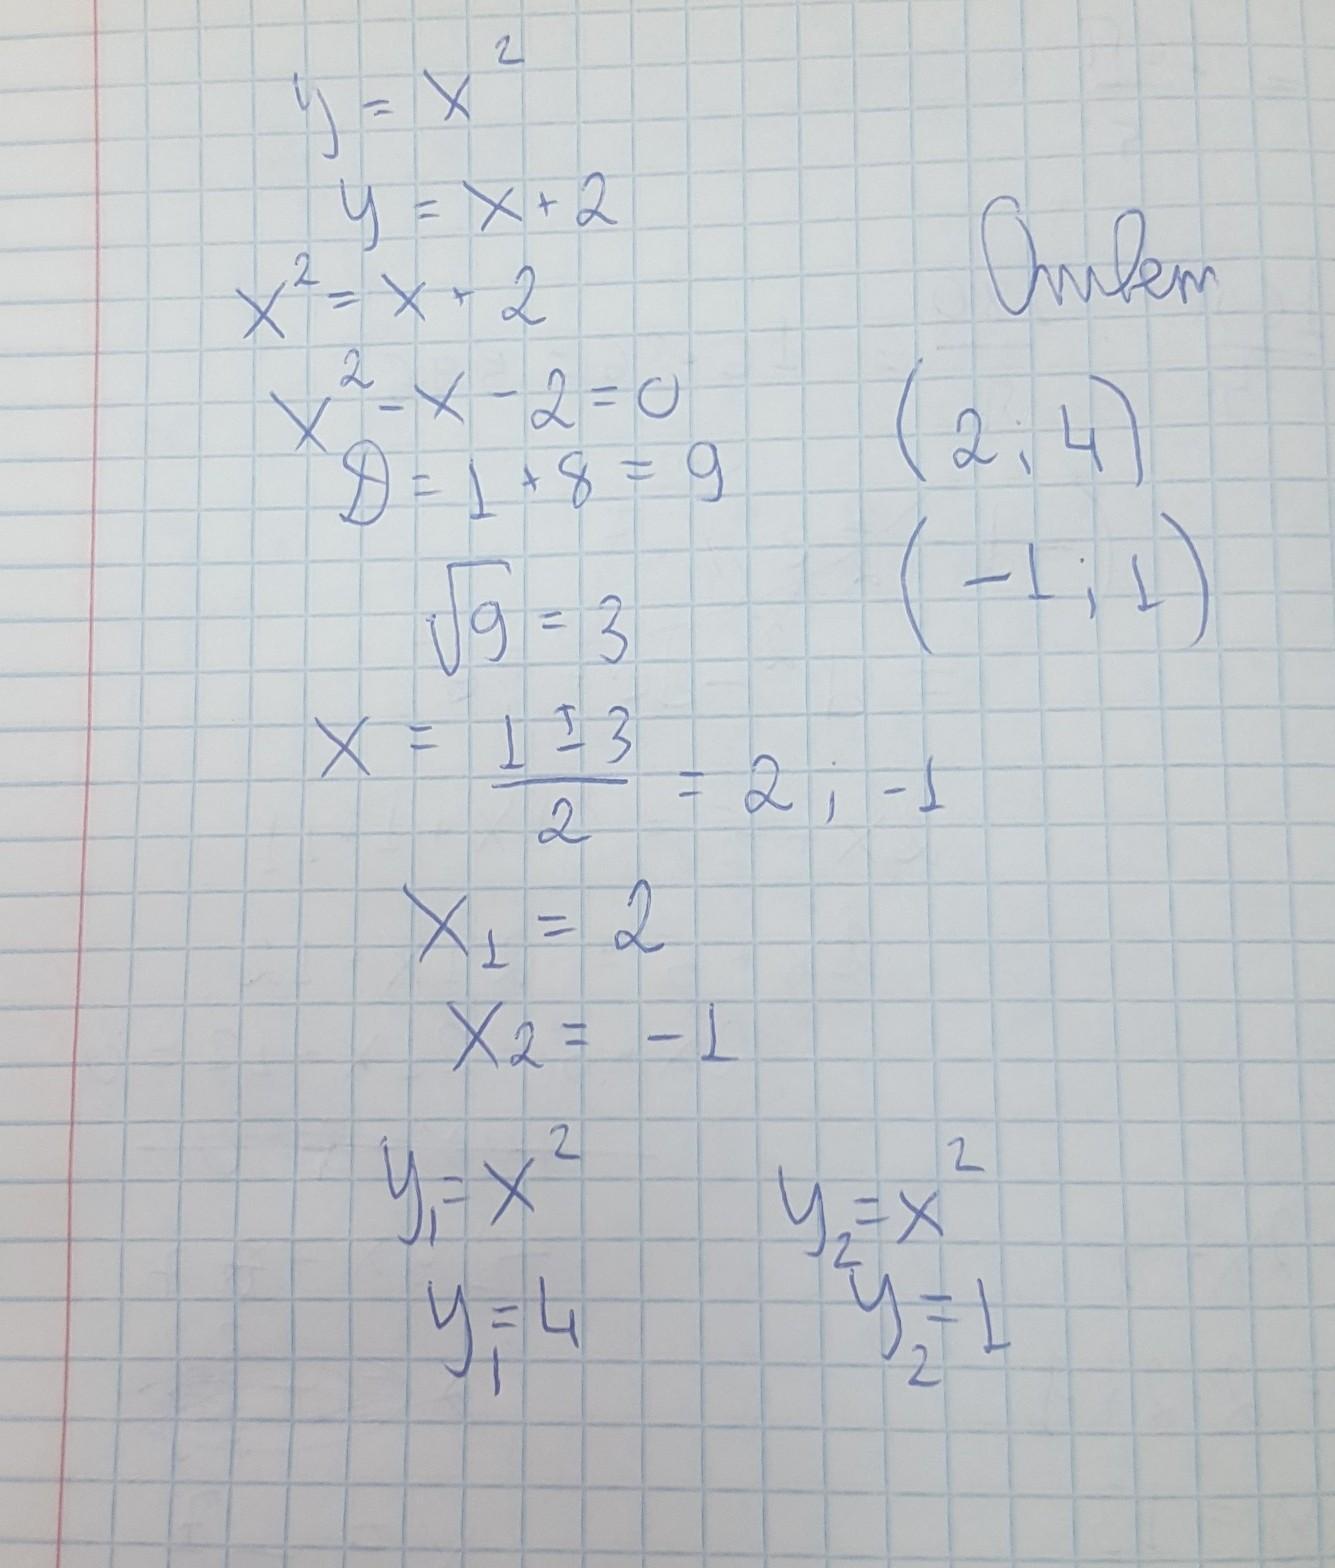 y = x²
y = x + 2
x² = x + 2
x² - x - 2 = 0
D = 1 + 8 = 9
√9 = 3
x = (1 ± 3)/2 = 2 ; -1
x₁ = 2
x₂ = -1
y₁ = x²
y₁ = 4
y₂ = x²
y₂ = 1
Ответ
(2 ; 4)
(-1 ; 1)